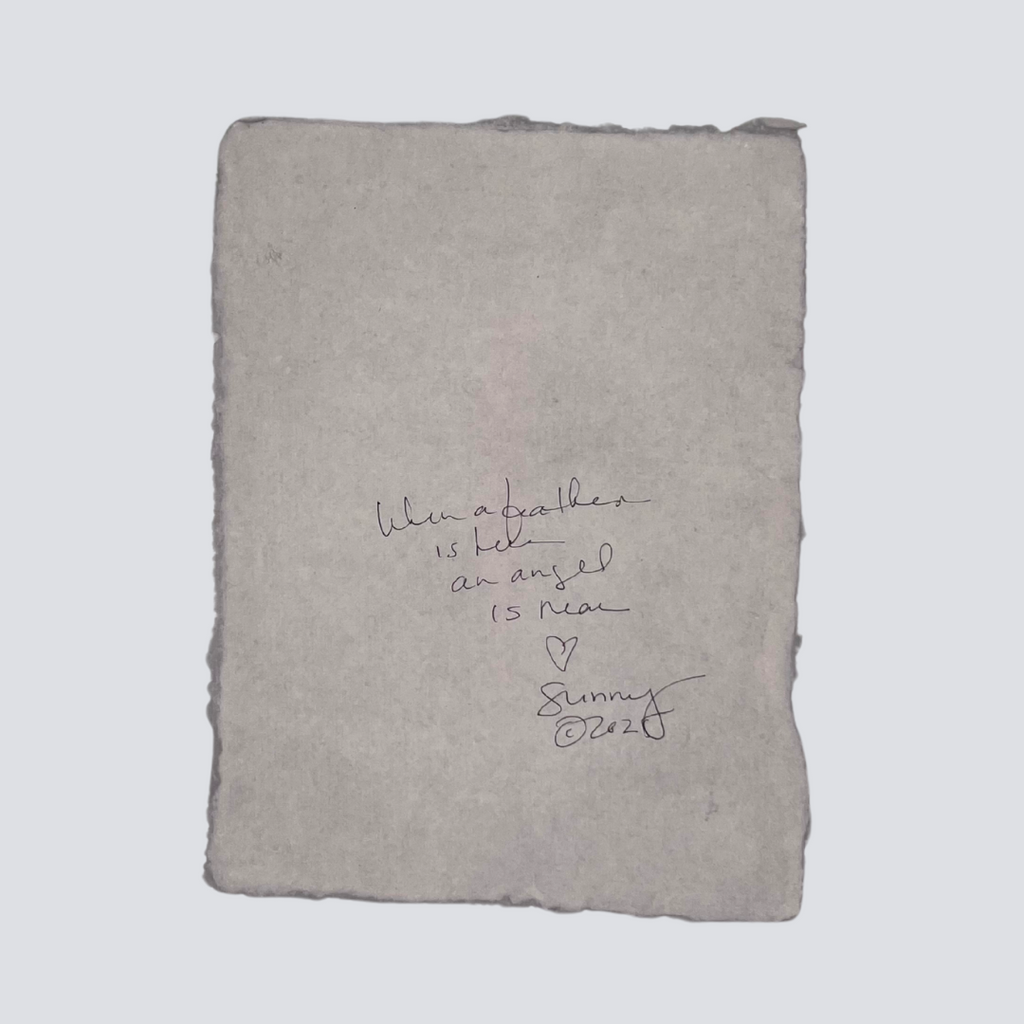 When a feather
is here
an angel
is near
♡
Sunny
©202